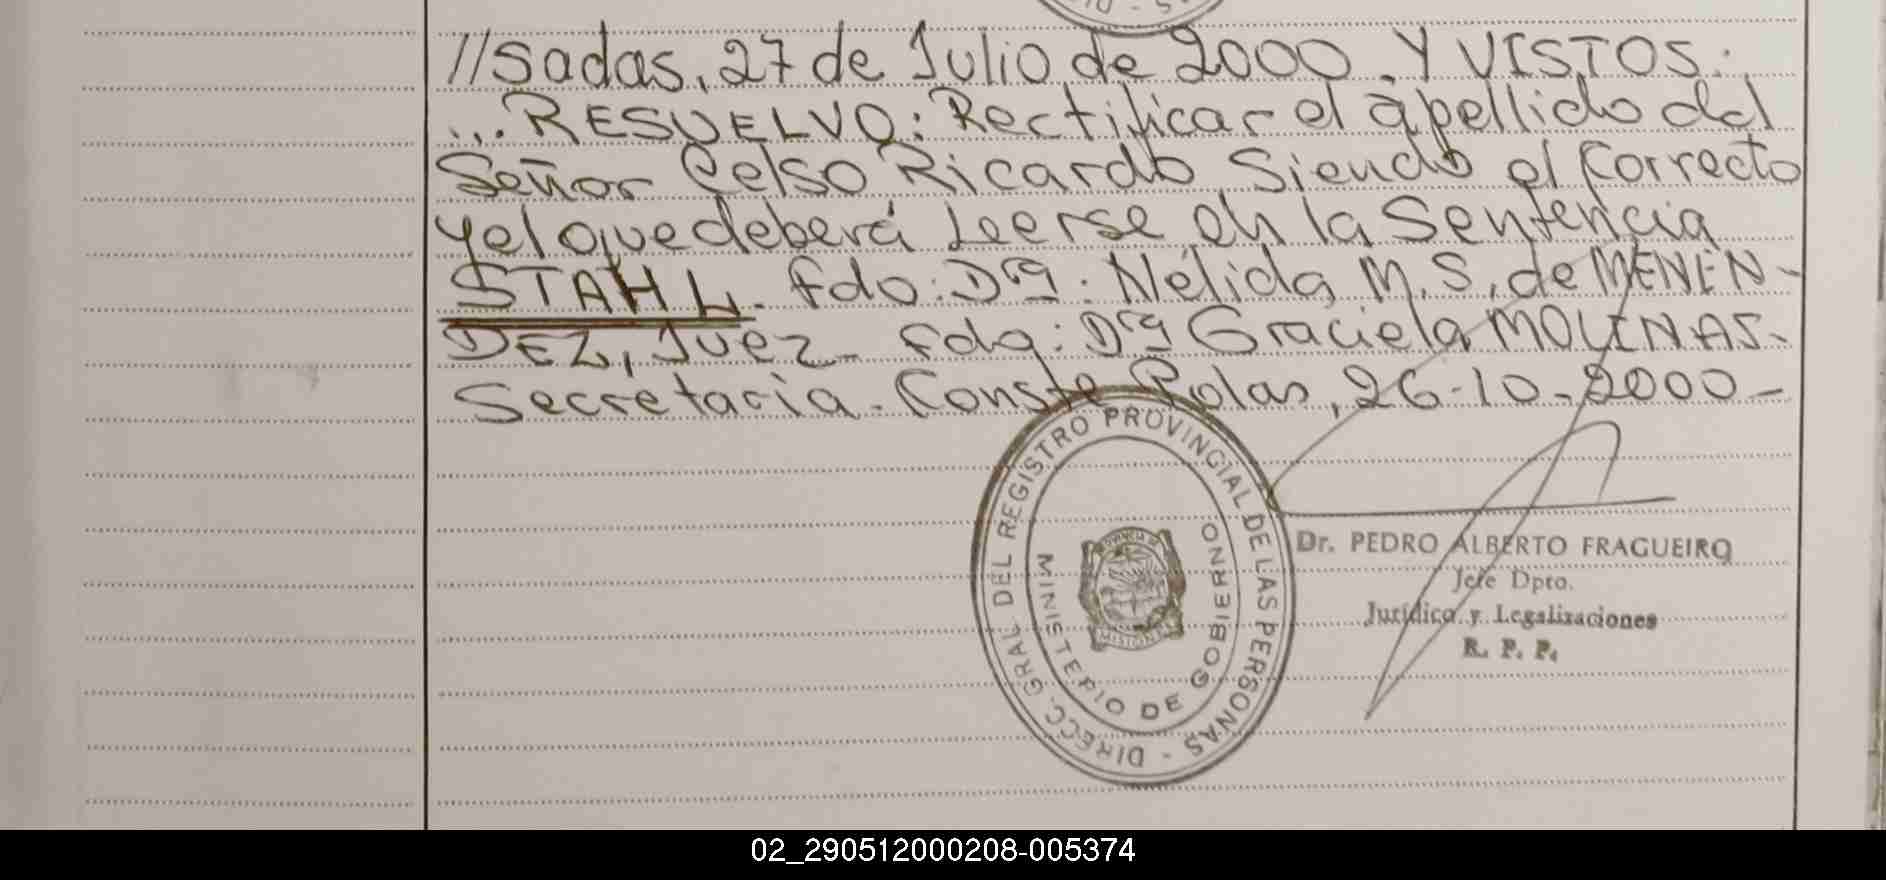 //Sadas, 27 de Julio de 2000. Y VISTOS:
... RESUELVO: Rectificar el apellido del
Señor Celso Ricardo, Siendo el Correcto
y el que deberá Leerse en la Sentencia
STAHL. Fdo: Drª: Nélida M. S. de MENEN-
DEZ, Juez. Fdo: Drª Graciela MOLINAS-
Secretaria. Conste Pdas, 26-10-2000-
DIRECC. GRAL. DEL REGISTRO PROVINCIAL DE LAS PERSONAS -
MINISTERIO DE GOBIERNO
Dr. PEDRO ALBERTO FRAGUEIRO
Jefe Dpto.
Jurídico y Legalizaciones
R. P. P.
02_290512000208-005374